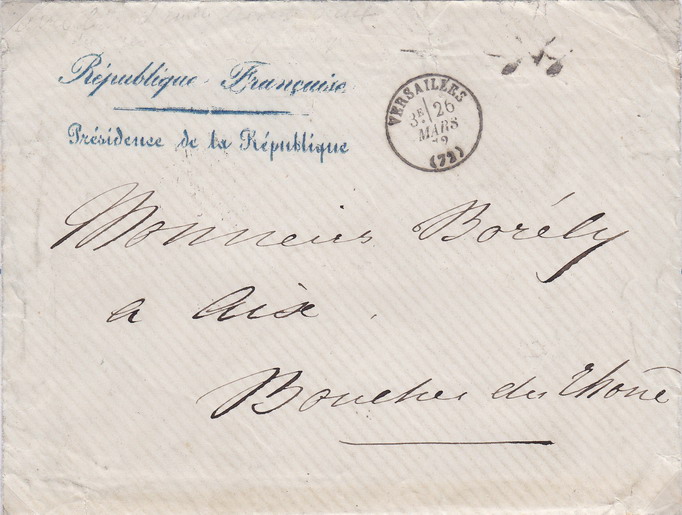 République Française
Présidence de la République
VERSAILLES
3E 26
MARS
(72)
Monsieur Borély
a Aix
Bouches du Rhône